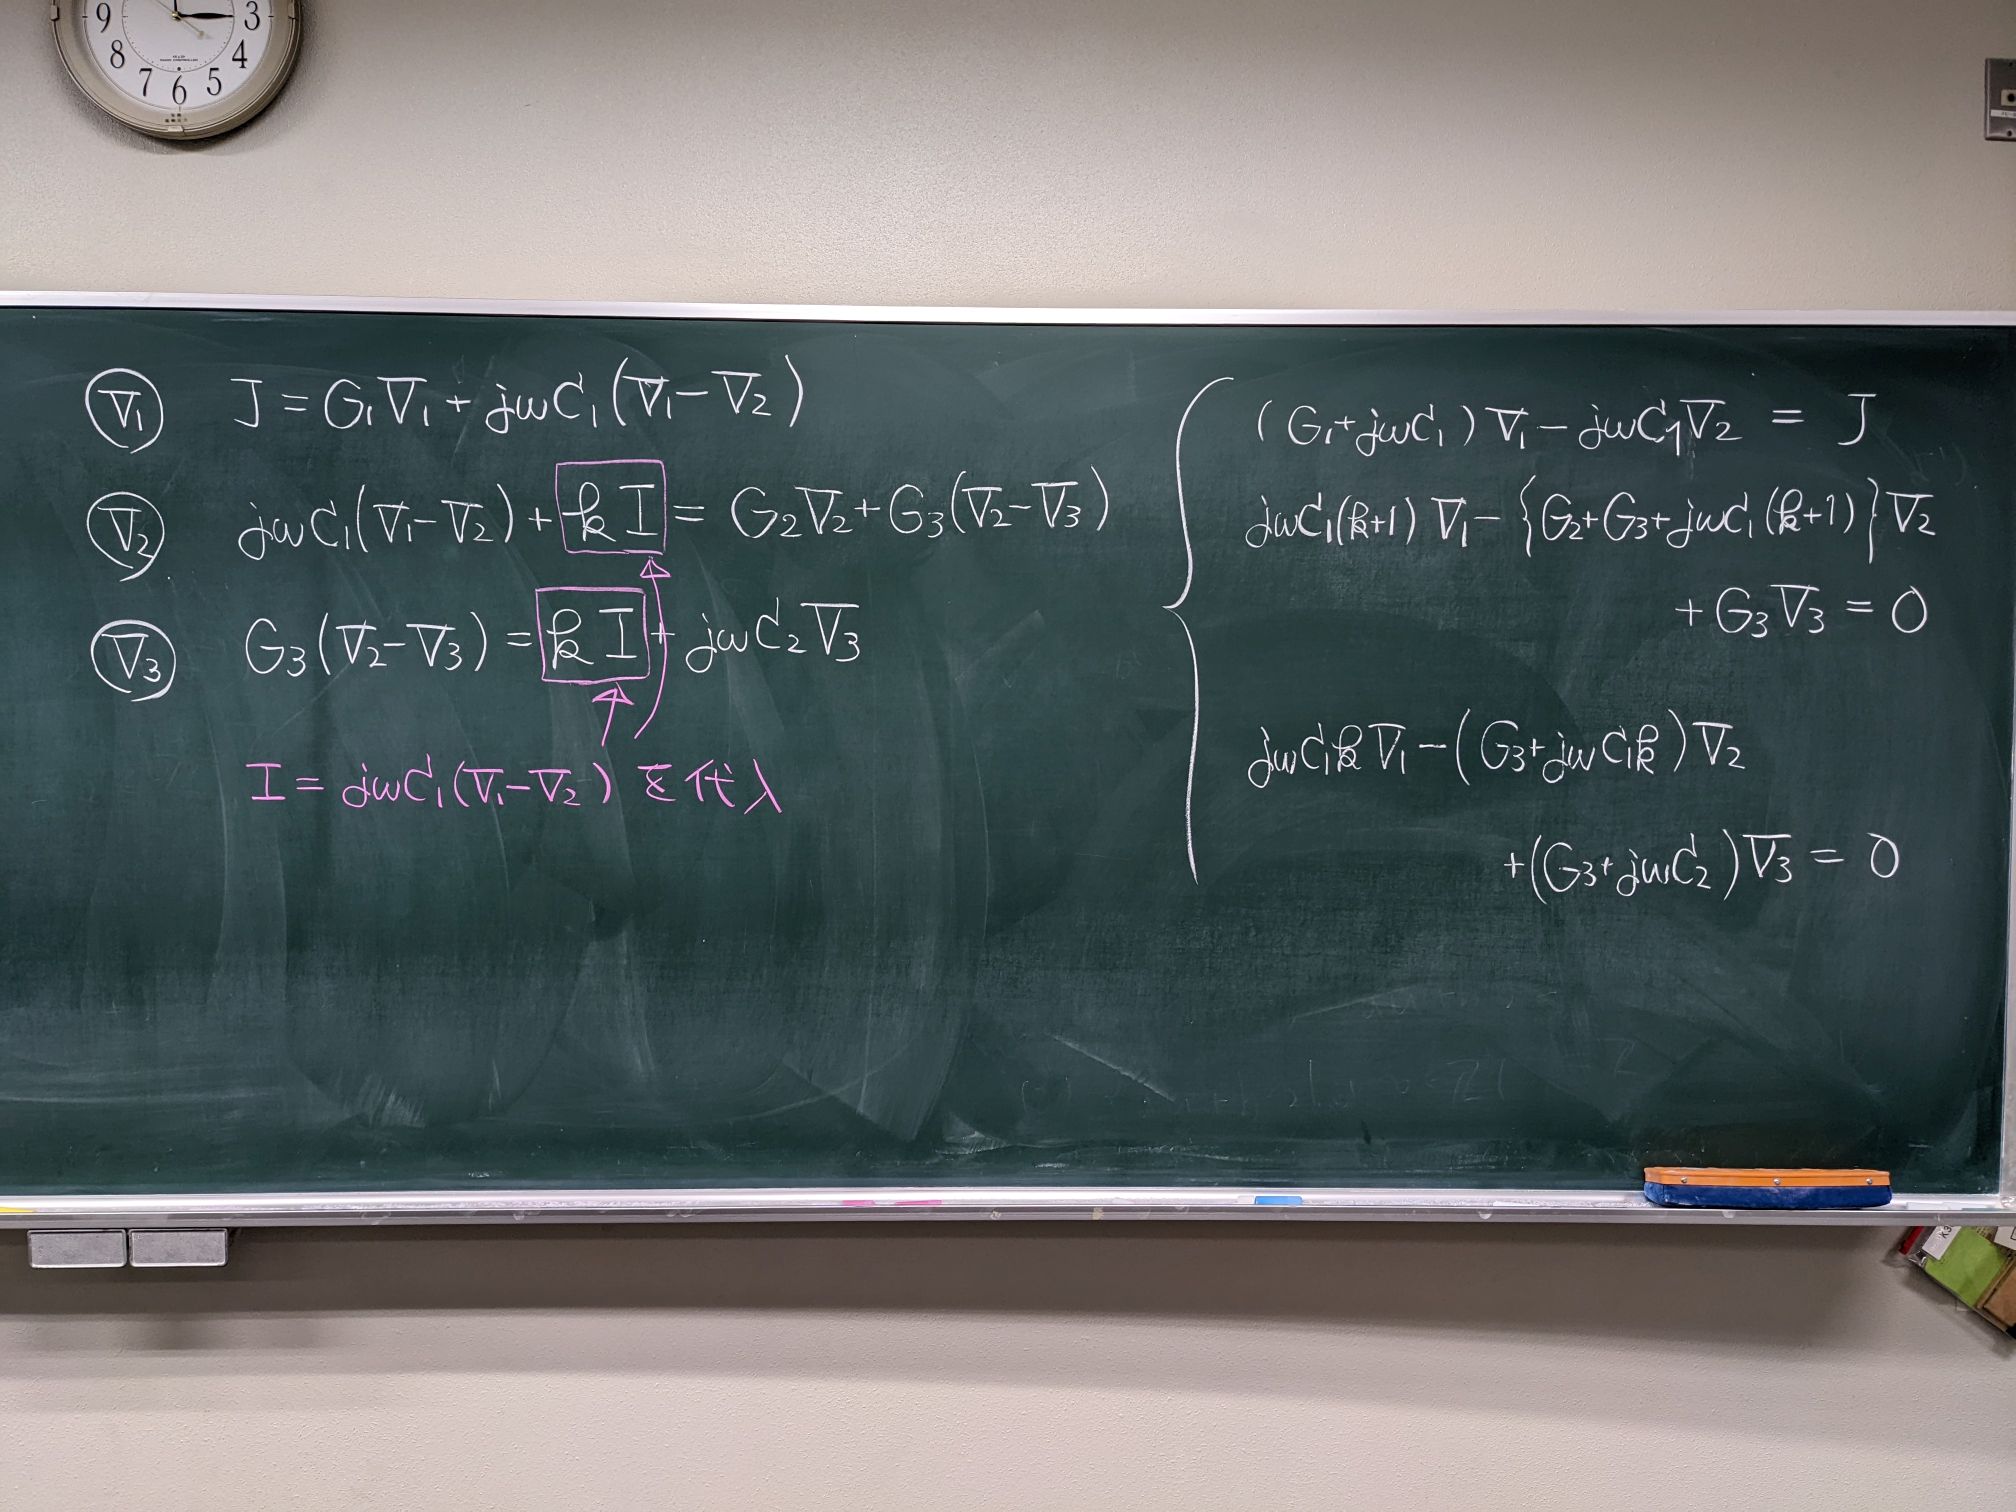 9 3
8 4
7 6 5
V₁ J = G₁V₁ + jωC₁(V₁−V₂)
V₂ jωC₁(V₁−V₂) + kI = G₂V₂ + G₃(V₂−V₃)
V₃ G₃(V₂−V₃) = kI + jωC₂V₃
I = jωC₁(V₁−V₂) を代入
(G₁+jωC₁)V₁ − jωC₁V₂ = J
jωC₁(k+1)V₁ − {G₂+G₃+jωC₁(k+1)}V₂
+G₃V₃ = 0
jωC₁kV₁ − (G₃+jωC₁k)V₂
+(G₃+jωC₂)V₃ = 0